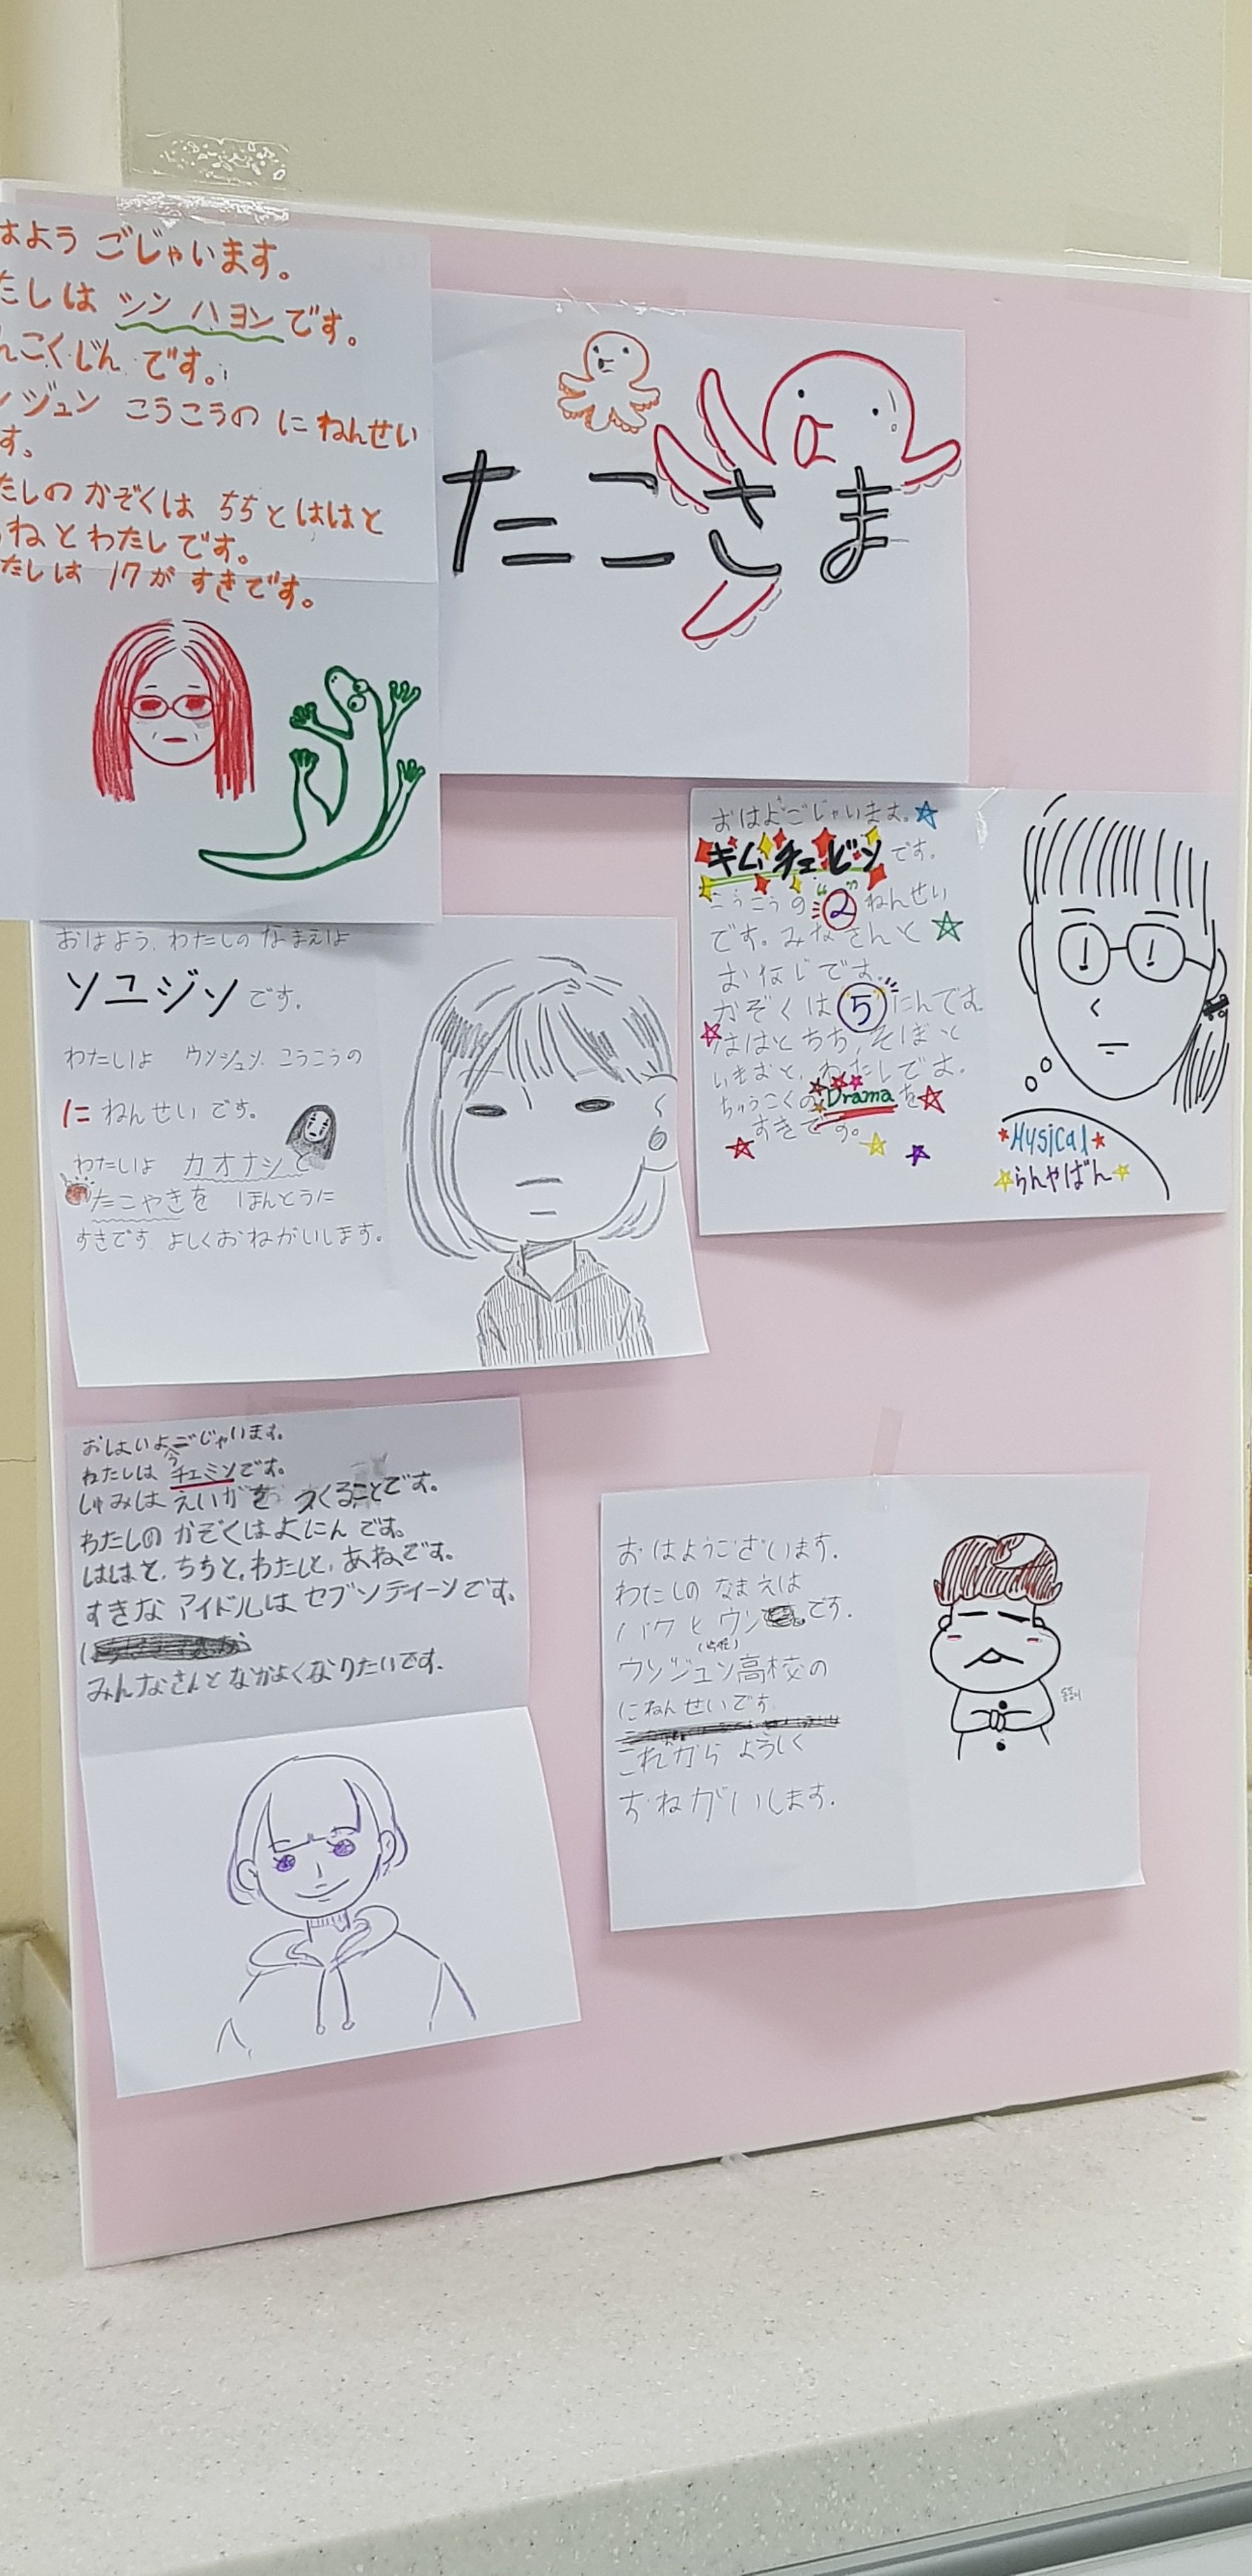 はよう ごじゃいます。
たしは シン ハヨンです。
んこくじん です。
ンジュン こうこうの に ねんせい
す。
たしの かぞくは ちちと ははと
ねと わたしです。
たしは 17が すきです。
たこさま
おはよごじゃいます。
キム チェビン です。
こうこうの "2" ねんせい
です。みなさんと
おなじです。
かぞくは 5 にんです
ははと ちち, そぼと
いもおと, わたしです。
ちゅうこくの Drama を
すきです。
Mysical
らんやばん
おはよう. わたしの なまえは
ソユジン です.
わたしは ウンジュン こうこうの
に ねんせい です.
わたしは カオナシと
たこやきを ほんとうに
すきです. よしくおねがいします.
おはいよごじゃいます.
わたしは チェミンです.
しゅみは えいがを つくることです.
わたしの かぞくはよにん です.
ははと. ちちと. わたしと, あねです.
すきな アイドルは セブンディーンです.
みんなさんと なかよくなりたいです.
おはようございます.
わたしの なまえは
パク ヒ ウン です.
ウンジュン高校の
にねんせいです.
これから ようしく
おねがいします.